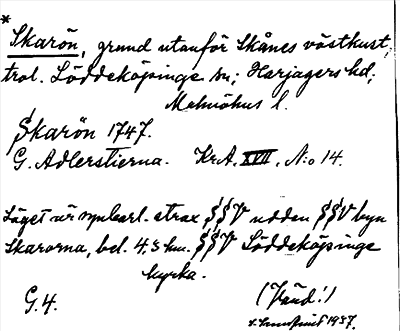 *
Skarön, grund utanför Skånes västkust,
trol. Löddeköpinge sn; Harjagers hd;
Malmöhus l.
Skarön 1747.
G. Adlerstierna. Kr.A. XVII, N:o 14.
Läget är uppenb. strax SSV udden SSV byn
Skararna, bel. 4,3 km. SSV Löddeköpinge
kyrka.
G.4. (Vänd!)
1937.